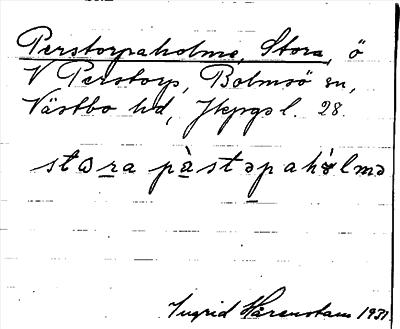 Perstorpaholme, Stora, ö
V Perstorp, Bolmsö sn,
Västbo hd, Jkpgs l. 28.
stɷra pàstəpahòlmə
Ingrid 1931